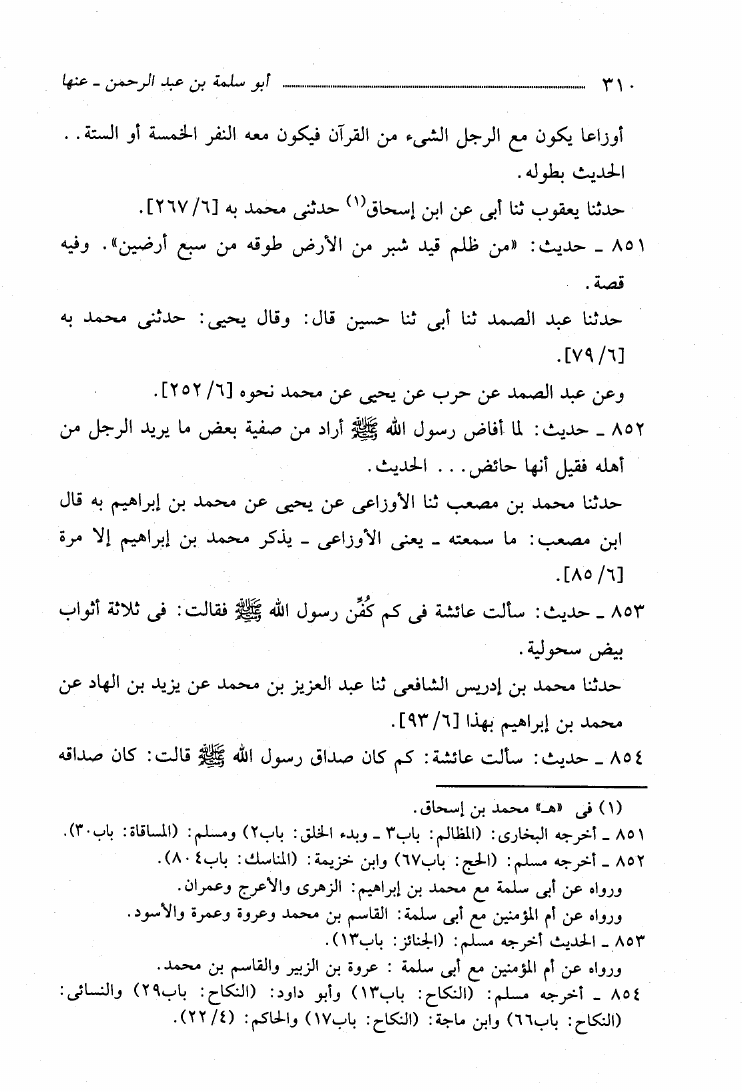 ٣١٠ أبو سلمة بن عبد الرحمن ـ عنها
أوزاعا يكون مع الرجل الشىء من القرآن فيكون معه النفر الخمسة أو الستة . .
الحديث بطوله.
حدثنا يعقوب ثنا أبى عن ابن إسحاق(١) حدثنى محمد به [٢٦٧/٦].
٨٥١ ـ حديث: «من ظلم قيد شبر من الأرض طوقه من سبع أرضين». وفيه
قصة.
حدثنا عبد الصمد ثنا أبى ثنا حسين قال: وقال يحيى: حدثنى محمد به
[٧٩/٦].
وعن عبد الصمد عن حرب عن يحيى عن محمد نحوه [٢٥٢/٦].
٨٥٢ ـ حديث: لما أفاض رسول الله ﷺ أراد من صفية بعض ما يريد الرجل من
أهله فقيل أنها حائض... الحديث.
حدثنا محمد بن مصعب ثنا الأوزاعى عن يحيى عن محمد بن إبراهيم به قال
ابن مصعب: ما سمعته ـ يعنى الأوزاعى ـ يذكر محمد بن إبراهيم إلا مرة
[٨٥/٦].
٨٥٣ ـ حديث: سألت عائشة فى كم كُفِّن رسول الله ﷺ فقالت: فى ثلاثة أثواب
بيض سحولية.
حدثنا محمد بن إدريس الشافعى ثنا عبد العزيز بن محمد عن يزيد بن الهاد عن
محمد بن إبراهيم بهذا [٩٣/٦].
٨٥٤ ـ حديث: سألت عائشة: كم كان صداق رسول الله ﷺ قالت: كان صداقه
(١) فى «هـ» محمد بن إسحاق.
٨٥١ ـ أخرجه البخارى: (المظالم: باب٣ ـ وبدء الخلق: باب٢) ومسلم: (المساقاة: باب٣٠).
٨٥٢ ـ أخرجه مسلم: (الحج: باب٦٧) وابن خزيمة: (المناسك: باب٨٠٤).
ورواه عن أبى سلمة مع محمد بن إبراهيم: الزهرى والأعرج وعمران.
ورواه عن أم المؤمنين مع أبى سلمة: القاسم بن محمد وعروة وعمرة والأسود.
٨٥٣ ـ الحديث أخرجه مسلم: (الجنائز: باب١٣).
ورواه عن أم المؤمنين مع أبى سلمة : عروة بن الزبير والقاسم بن محمد.
٨٥٤ ـ أخرجه مسلم: (النكاح: باب١٣) وأبو داود: (النكاح: باب٢٩) والنسائى:
(النكاح: باب٦٦) وابن ماجة: (النكاح: باب١٧) والحاكم: (٢٢/٤).